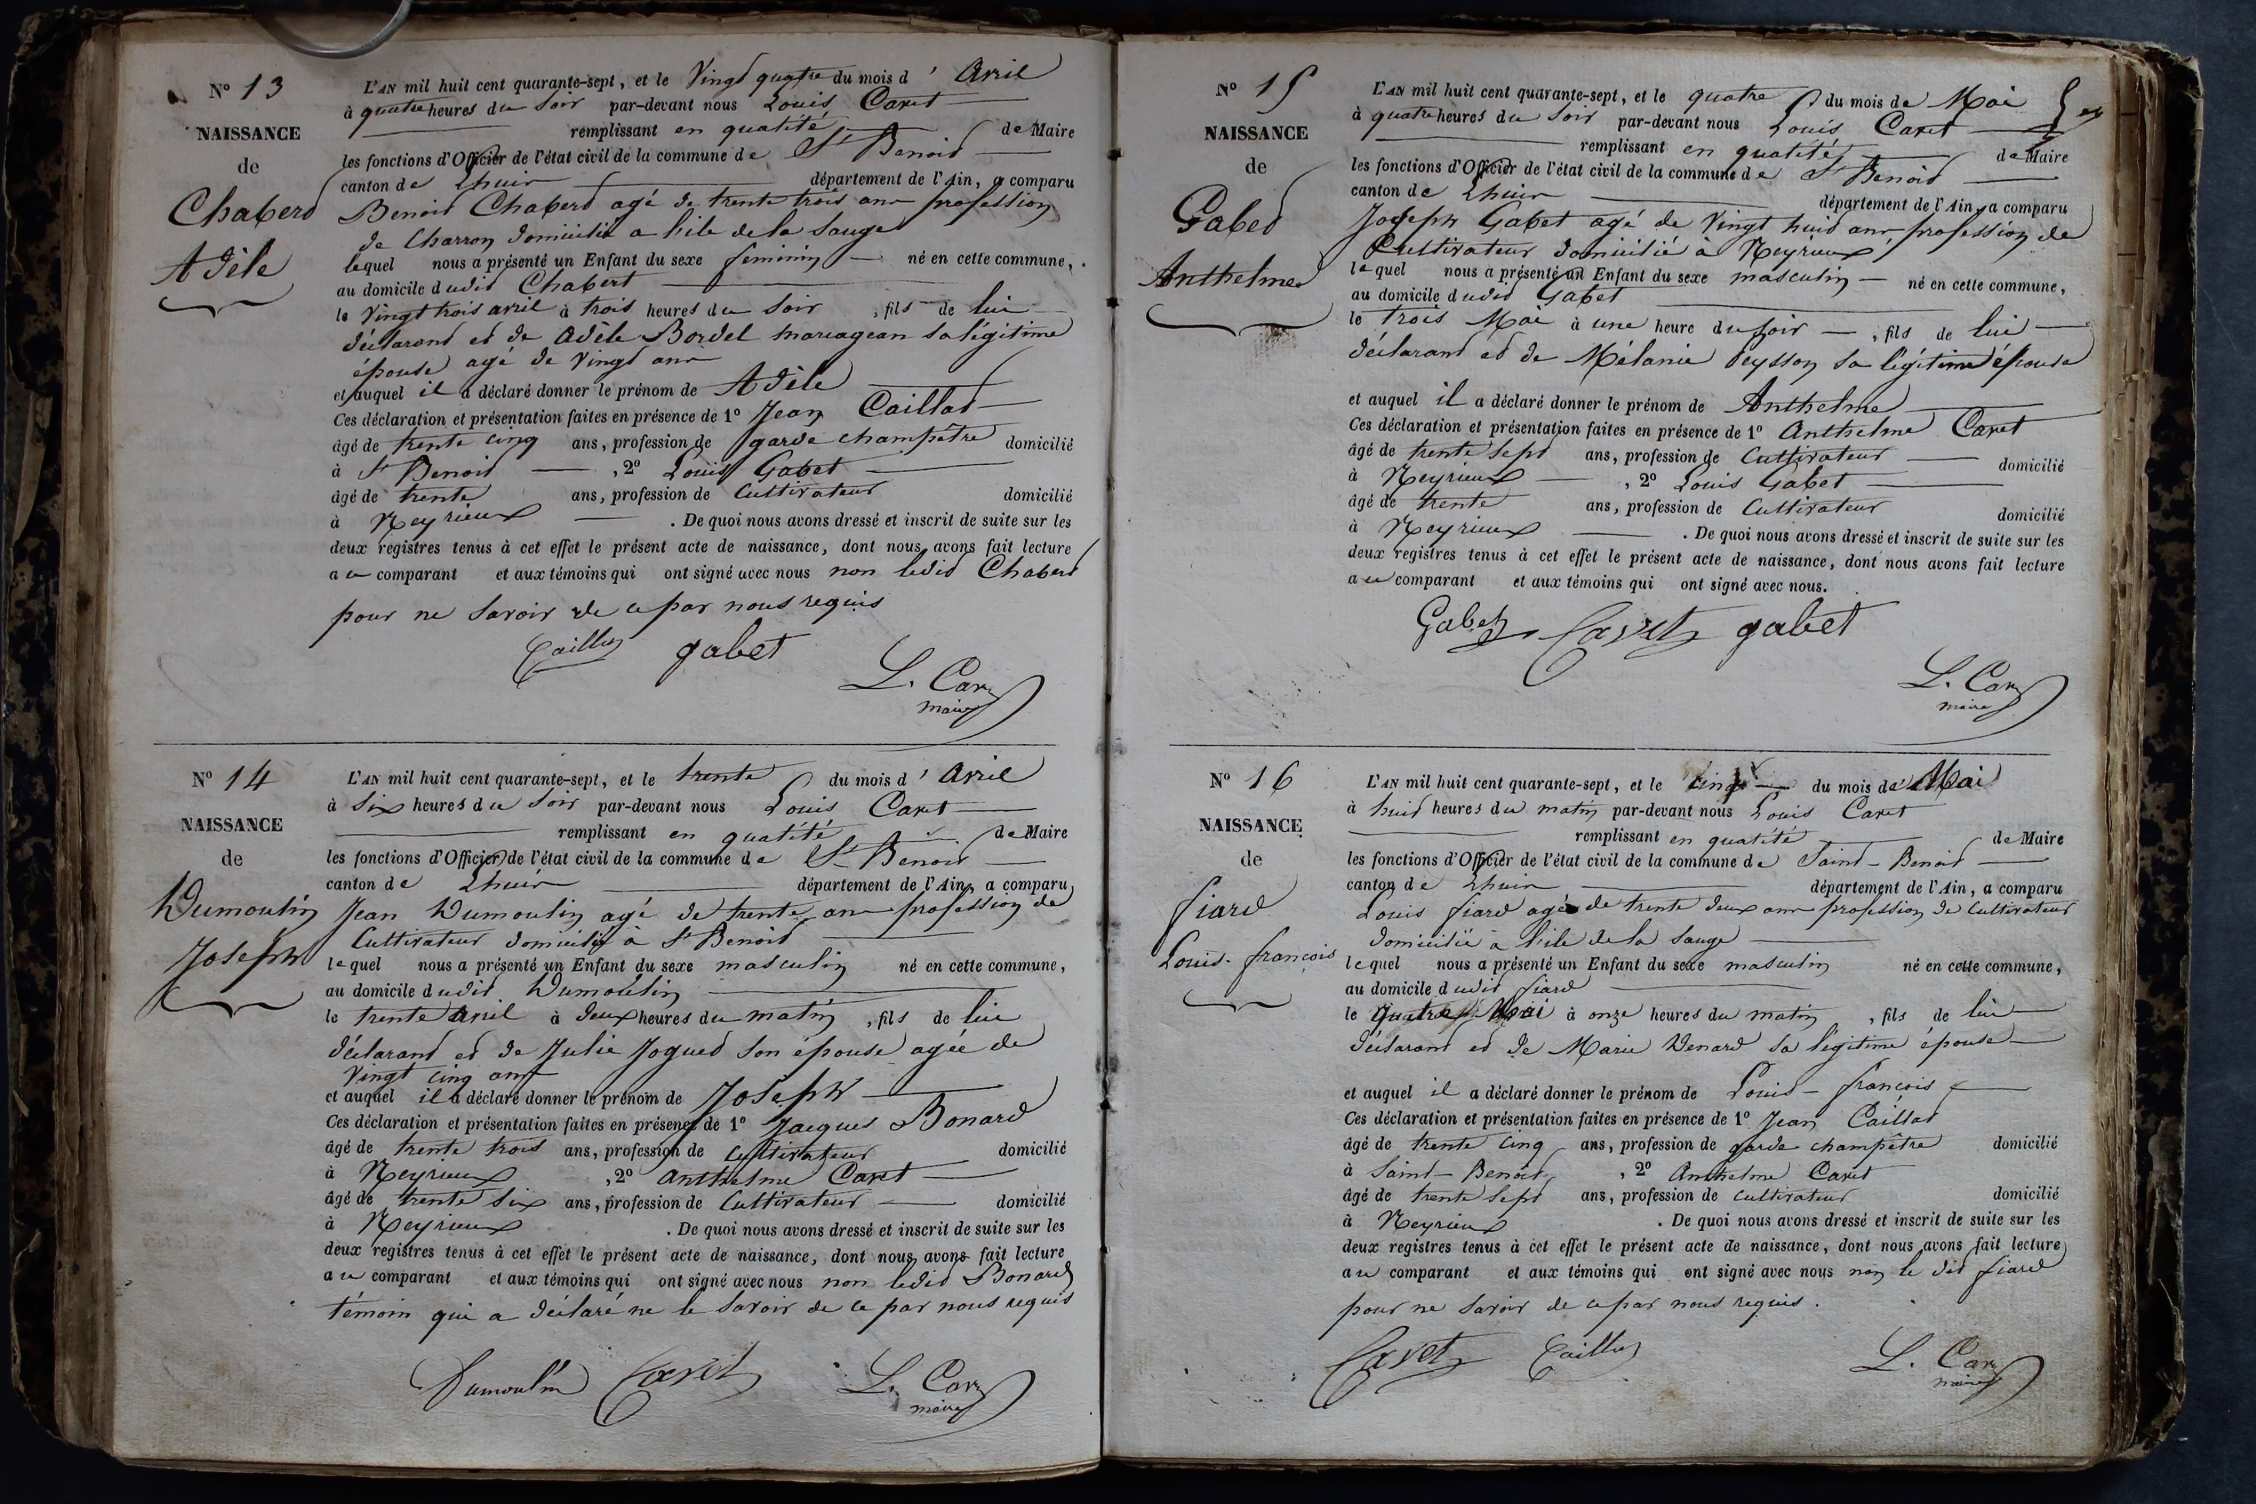 N° 13
NAISSANCE
de
Chaberd
Adèle
L'AN mil huit cent quarante-sept, et le Vingt quatre du mois d' Avril
à quatre heures du Soir par-devant nous Louis Caret
remplissant en qualité de Maire
les fonctions d'Officier de l'état civil de la commune de St Benoid
canton de Lhuis département de l'Ain, a comparu
Benoid Chaberd agé de trente trois ans profession
de Charron domicilié a l'ile de la Sauge
lequel nous a présenté un Enfant du sexe feminin né en cette commune,
au domicile dudid Chabert
le Vingt trois avril à trois heures du Soir , fils de lui
déclarand ed de Adèle Bordel mariagean Sa légitime
épouse agé de Vingt ans
et auquel il a déclaré donner le prénom de Adèle
Ces déclaration et présentation faites en présence de 1° Jean Caillad
âgé de trente cinq ans, profession de garde champêtre domicilié
à St Benoid , 2° Louis Gabet
âgé de trente ans, profession de Cultivateur domicilié
à Neyrieux . De quoi nous avons dressé et inscrit de suite sur les
deux registres tenus à cet effet le présent acte de naissance, dont nous avons fait lecture
au comparant et aux témoins qui ont signé avec nous non ledid Chaberd
pour ne Savoir de ce par nous requis
Caillad gabet
L. Car
maire
N° 14
NAISSANCE
de
Dumoulin
Joseph
L'AN mil huit cent quarante-sept, et le trente du mois d' Avril
à Six heures du Soir par-devant nous Louis Caret
remplissant en qualité de Maire
les fonctions d'Officier de l'état civil de la commune de St Benoid
canton de Lhuis département de l'Ain, a comparu
Jean Dumoulin agé de trente ans profession de
Cultivateur domicilié à St Benoid
lequel nous a présenté un Enfant du sexe masculin né en cette commune,
au domicile dudid Dumoulin
le trente avril à deux heures du matin , fils de lui
déclarand ed de Julie Jogued Son épouse agée de
Vingt cinq ans
et auquel il a déclaré donner le prénom de Joseph
Ces déclaration et présentation faites en présence de 1° Jacques Bonard
âgé de trente trois ans, profession de Cultivateur domicilié
à Neyrieux , 2° Anthelme Caret
âgé de trente Six ans, profession de Cultivateur domicilié
à Neyrieux . De quoi nous avons dressé et inscrit de suite sur les
deux registres tenus à cet effet le présent acte de naissance, dont nous avons fait lecture
au comparant et aux témoins qui ont signé avec nous non ledid Bonard
témoin qui a déclaré ne le Savoir de ce par nous requis
Dumoulin Caret L. Car
maire
N° 15
NAISSANCE
de
Gabed
Anthelme
L'AN mil huit cent quarante-sept, et le quatre du mois de Mai
à quatre heures du Soir par-devant nous Louis Caret
remplissant en qualité de Maire
les fonctions d'Officier de l'état civil de la commune de St Benoid
canton de Lhuis département de l'Ain, a comparu
Joseph Gabet agé de Vingt huid ans profession de
Cultivateur domicilié à Neyrieux
lequel nous a présenté un Enfant du sexe masculin né en cette commune,
au domicile dudid Gabet
le trois Mai à une heure du Soir , fils de lui
déclarand ed de Mélanie Peysson Sa légitime épouse
et auquel il a déclaré donner le prénom de Anthelme
Ces déclaration et présentation faites en présence de 1° Anthelme Caret
âgé de trente Sept ans, profession de Cultivateur domicilié
à Neyrieux , 2° Louis Gabet
âgé de trente ans, profession de Cultivateur domicilié
à Neyrieux . De quoi nous avons dressé et inscrit de suite sur les
deux registres tenus à cet effet le présent acte de naissance, dont nous avons fait lecture
au comparant et aux témoins qui ont signé avec nous.
Gabet Caret gabet
L. Car
maire
N° 16
NAISSANCE
de
fiard
Louis-françois
L'AN mil huit cent quarante-sept, et le cinq du mois de Mai
à huid heures du matin par-devant nous Louis Caret
remplissant en qualité de Maire
les fonctions d'Officier de l'état civil de la commune de Saint-Benoid
canton de Lhuis département de l'Ain, a comparu
Louis fiard agé de trente deux ans profession de Cultivateur
domicilié à l'ile de la Sauge
lequel nous a présenté un Enfant du sexe masculin né en cette commune,
au domicile dudid fiard
le quatre Mai à onze heures du matin , fils de lui
déclarand ed de Marie Denard Sa légitime épouse
et auquel il a déclaré donner le prénom de Louis-françois
Ces déclaration et présentation faites en présence de 1° Jean Caillad
âgé de trente cinq ans, profession de garde champêtre domicilié
à Saint-Benoid , 2° Anthelme Caret
âgé de trente Sept ans, profession de Cultivateur domicilié
à Neyrieux . De quoi nous avons dressé et inscrit de suite sur les
deux registres tenus à cet effet le présent acte de naissance, dont nous avons fait lecture
au comparant et aux témoins qui ont signé avec nous non le did fiard
pour ne Savoir de ce par nous requis.
Caret Caillad L. Car
maire